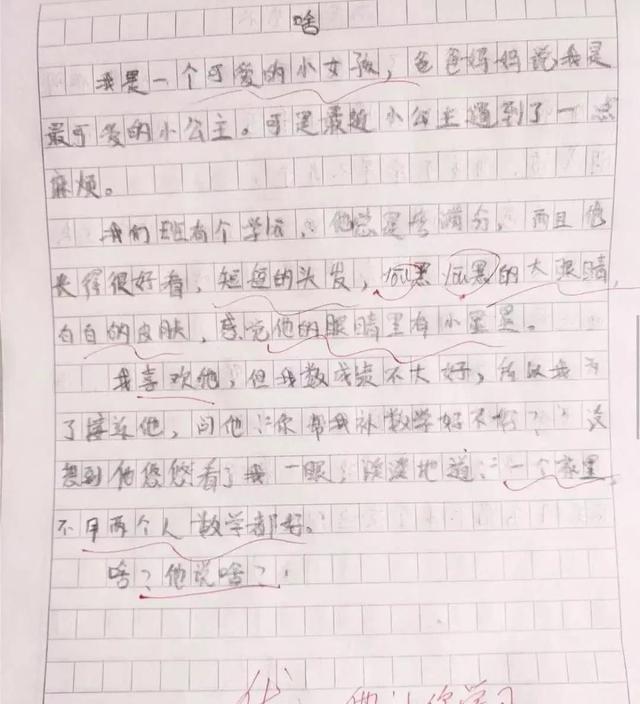 啥
我是一个可爱的小女孩，爸爸妈妈说我是
最可爱的小公主。可是最近小公主遇到了一点
麻烦。
我们班有个学霸，他总是考满分，而且他
长得很好看，短短的头发，黑黑的大眼睛，
白白的皮肤，感觉他的眼睛里有小星星。
我喜欢他，但我数成绩不大好，所以我为
了接近他，问他：“你帮我补数学好不好？”没
想到他悠悠看了我一眼，淡淡地道：“一个家里
不用两个人数学都好。
啥？他说啥？
优